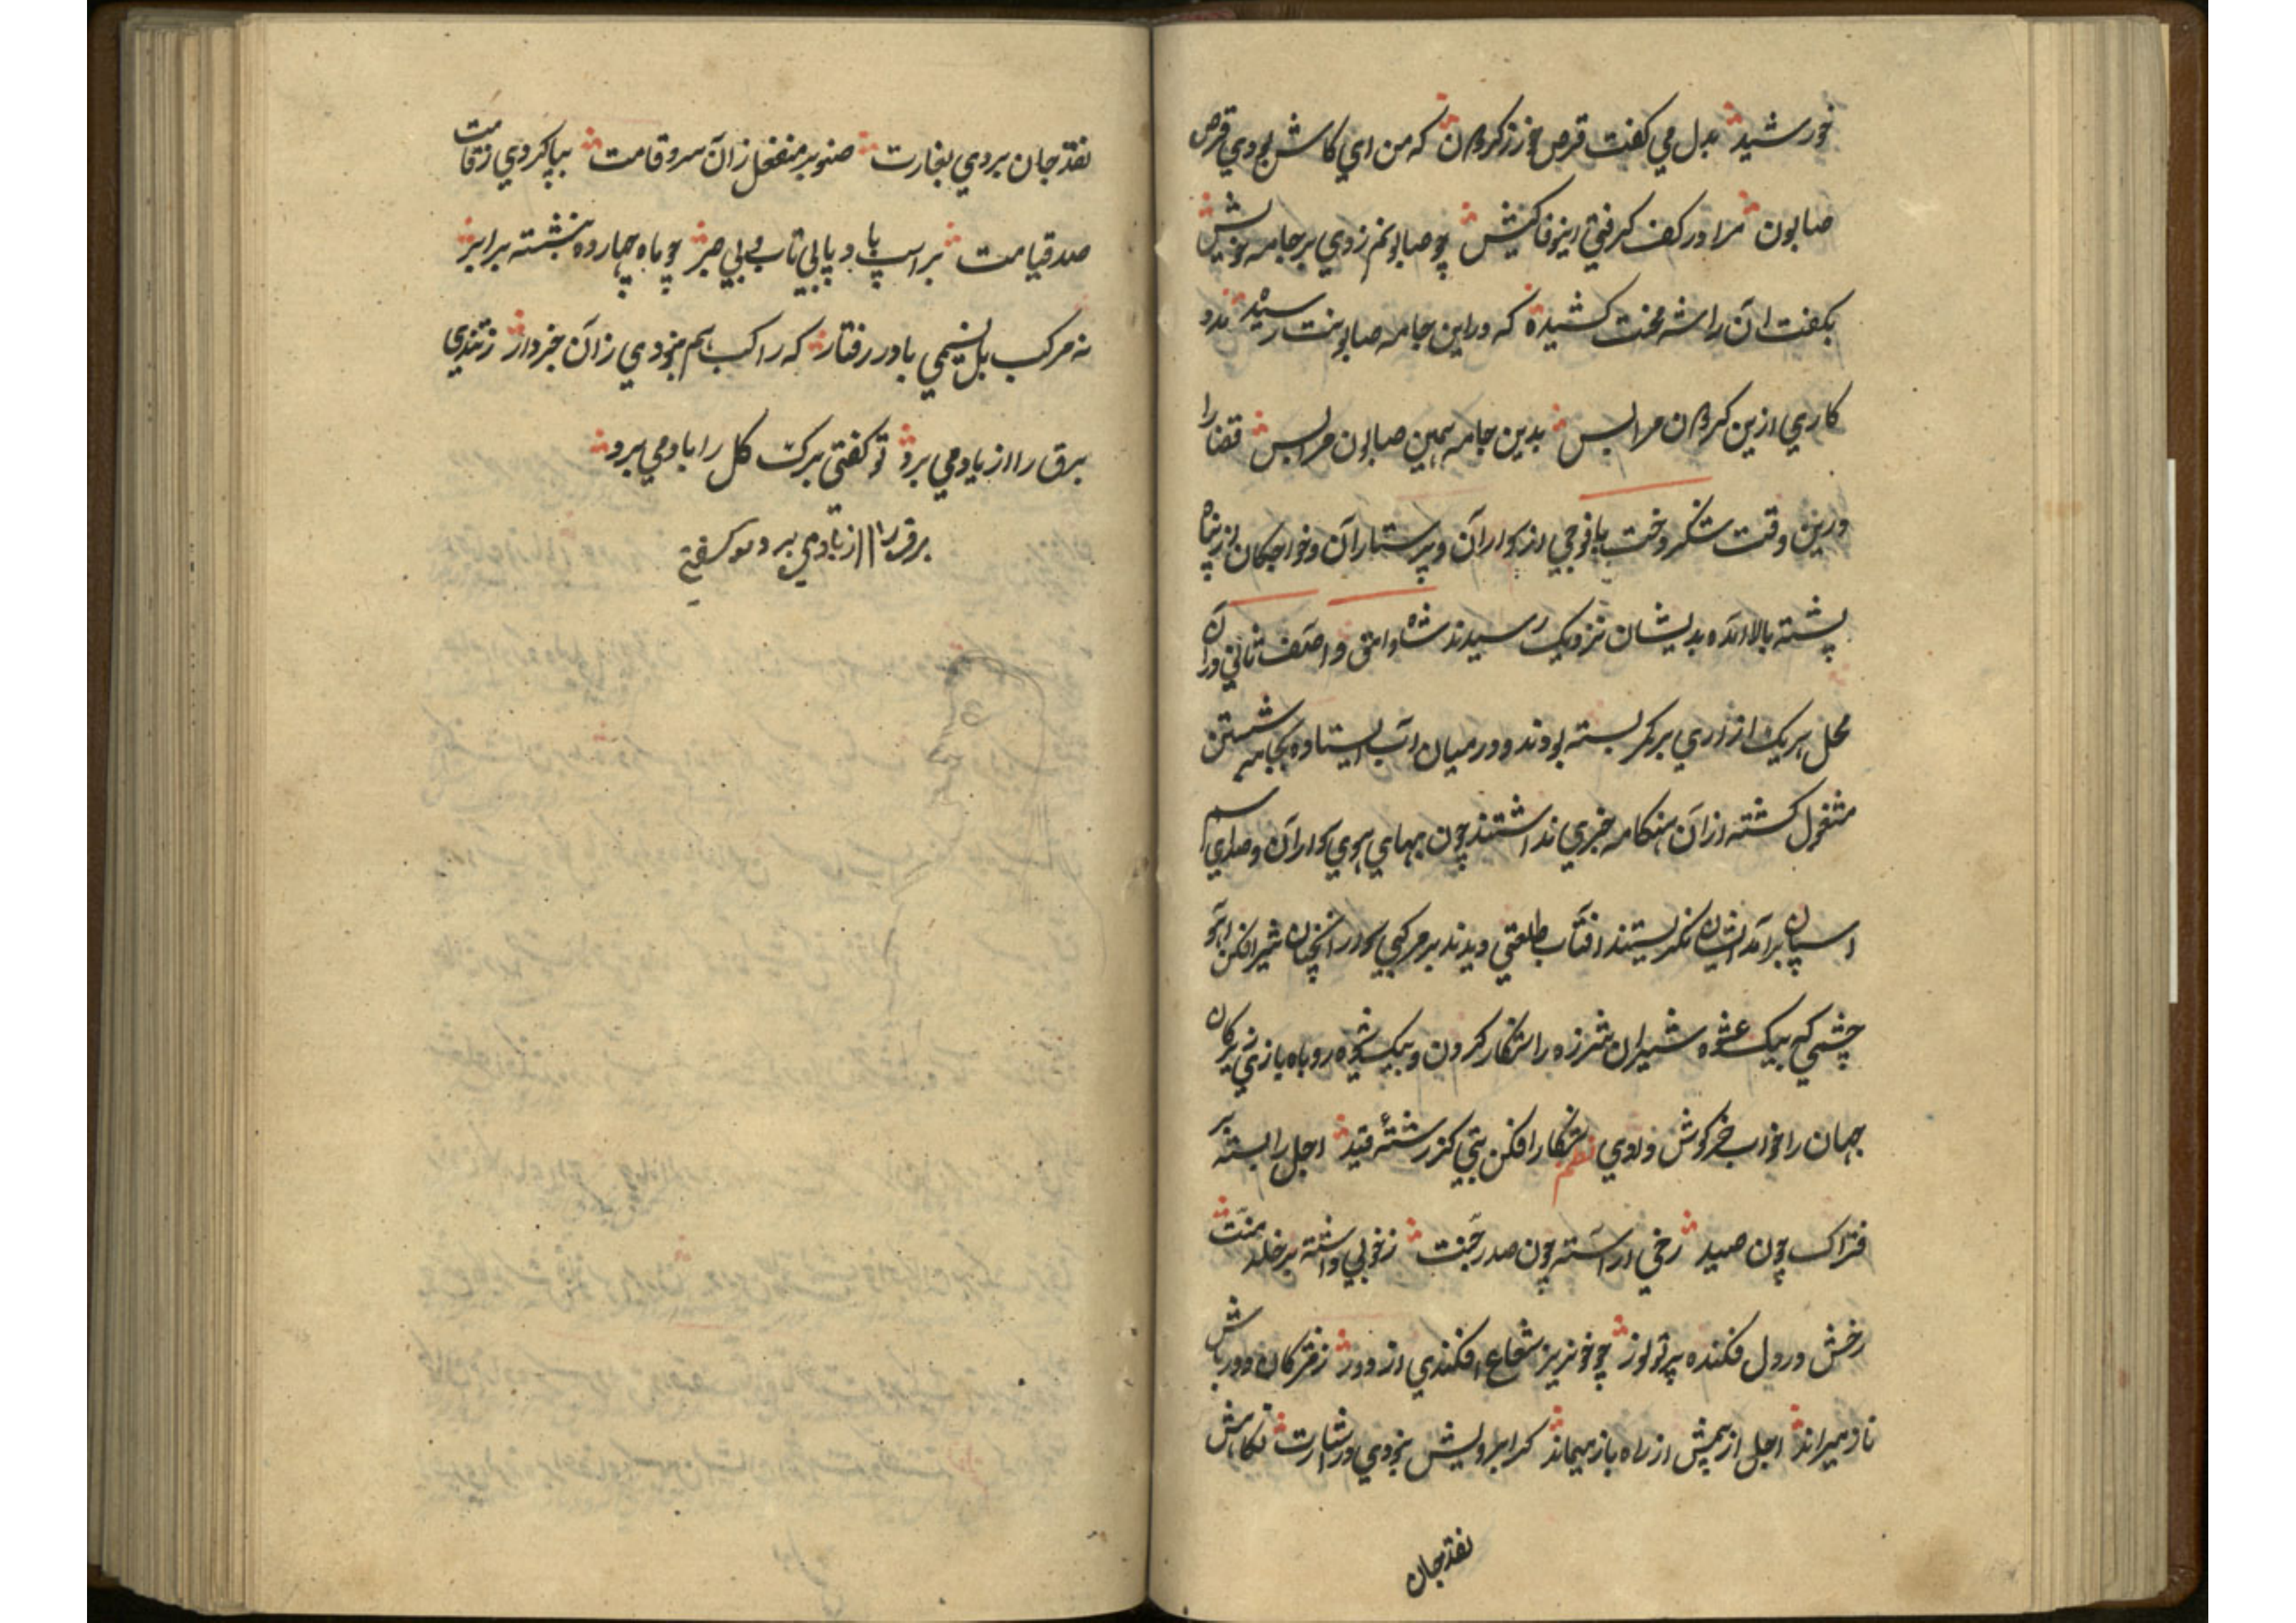 خورشید بدل می کفت قرص خور ز کردون که من ای کاش بودی قرص
صابون مرا در کف کرفتی این وفا کیش چو صابونم زدی بر جامه خویش
بکفت آن را شه محنت کشیده که در این جامه صابونت رسیده
کاری ازین کردون مرا بس بدین جامه همین صابون مرا بس قضا را
درین وقت با فوجی از سواران و پرستاران و خواجکان از پناه
پشته بالا آمده بدیشان نزدیک رسیدند شاه وامق و آصف ثانی در آن
محل هر یک ازاری بر کمر بسته بودند و در میان آب ایستاده بجامه شستن
مشغول کشته از آن هنکامه خبری نداشتند چون بهای هوی سواران و صدای سم
اسپان بر آمد ایشان نکریستند آفتاب طلعتی دیدند بر مرکبی سوار آنچنان شیر افکن آهو
چشمی که بیک عشوه شیران شرزه را شکار کردن و بیک شیوه روباه بازی
جهان را خواب خرکوش دادی نظم شکار افکن بتی کز رشته قید اجل را بسته بر
فتراک چون صید رخی آراسته چون صد رجنت ز خوبی داشته بر خلد منت
رخش در دل فکنده پرتو نور چو خونریز شعاع افکندی از دور ز مژکان دور باش
ناز میراند اجل از بیمش از راه باز میماند کز ابرویش نمودی در اشارت نکاهش
نقد جان
نقد جان بردی بغارت صنوبر منفعل زان سرو قامت بپا کردی ز قامت
صد قیامت بر اسپ باد پا بی تاب و بی صبر چو ماه چهارده بنشسته بر ابر
نه مرکب بل نسیمی باد رفتار که راکب هم نبودی زان خبردار ز تندی
برق را از یاد می برد تو کفتی برک کل را باد می برد
برق را از یاد می برد تو کفتی